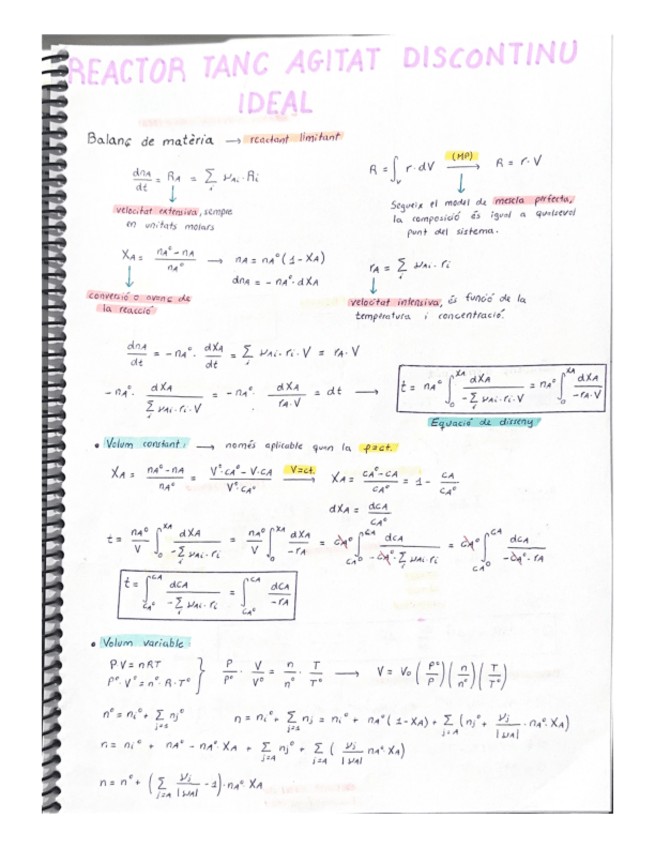 REACTOR TANC AGITAT DISCONTINU
IDEAL
Balanç de matèria → reactant limitant
dnA/dt = RA = Σi νAi·Ri
R = ∫V r·dV (MP) → R = r·V
velocitat extensiva, sempre
en unitats molars
Segueix el model de mescla perfecta,
la composició és igual a qualsevol
punt del sistema.
XA = (nA° - nA)/nA° → nA = nA°(1-XA)
dnA = - nA°·dXA
conversió o avanç de
la reacció
rA = Σi νAi·ri
velocitat intensiva, és funció de la
temperatura i concentració.
dnA/dt = -nA°·dXA/dt = Σi νAi·ri·V = rA·V
-nA°·dXA/(Σi νAi·ri·V) = -nA°·dXA/(rA·V) = dt →
t = nA° ∫0^XA dXA/(-Σi νAi·ri·V) = nA° ∫0^XA dXA/(-rA·V)
Equació de disseny
• Volum constant: → només aplicable quan la ρ=ct.
XA = (nA°-nA)/nA° = (V°·CA°-V·CA)/(V°·CA°) V=ct. → XA = (CA°-CA)/CA° = 1 - CA/CA°
dXA = dCA/CA°
t = nA°/V ∫0^XA dXA/(-Σi νAi·ri) = nA°/V ∫0^XA dXA/(-rA) = CA° ∫CA°^CA dCA/(-CA°·Σi νAi·ri) = CA° ∫CA°^CA dCA/(-CA°·rA)
t = ∫CA°^CA dCA/(-Σi νAi·ri) = ∫CA°^CA dCA/(-rA)
• Volum variable:
PV = nRT
P°·V° = n°·R·T°
} P/P° · V/V° = n/n° · T/T° → V = V0 (P°/P)(n/n°)(T/T°)
n° = ni° + Σj=s nj°
n = ni° + Σj=s nj = ni° + nA°(1-XA) + Σj≠A (nj° + νj/|νA| · nA°·XA)
n = ni° + nA° - nA°·XA + Σj≠A nj° + Σj≠A (νj/|νA| nA°·XA)
n = n° + (Σj≠A νj/|νA| - 1)·nA°·XA